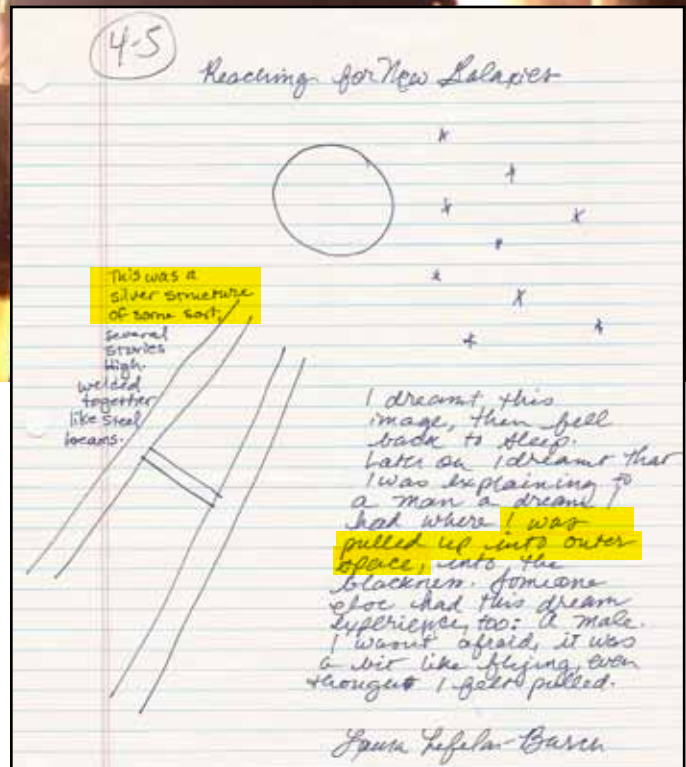 4-5
Reaching for New Galaxies
This was a
silver structure
of some sort,
several
stories
High.
welded
together
like steel
beams.
I dreamt this
image, then fell
back to sleep.
Later on I dreamt that
I was explaining to
a man a dream I
had where I was
pulled up into outer
space, into the
blackness. Someone
else had this dream
experience, too: A male.
I wasn't afraid, it was
a bit like flying, even
thought I felt pulled.
Laura